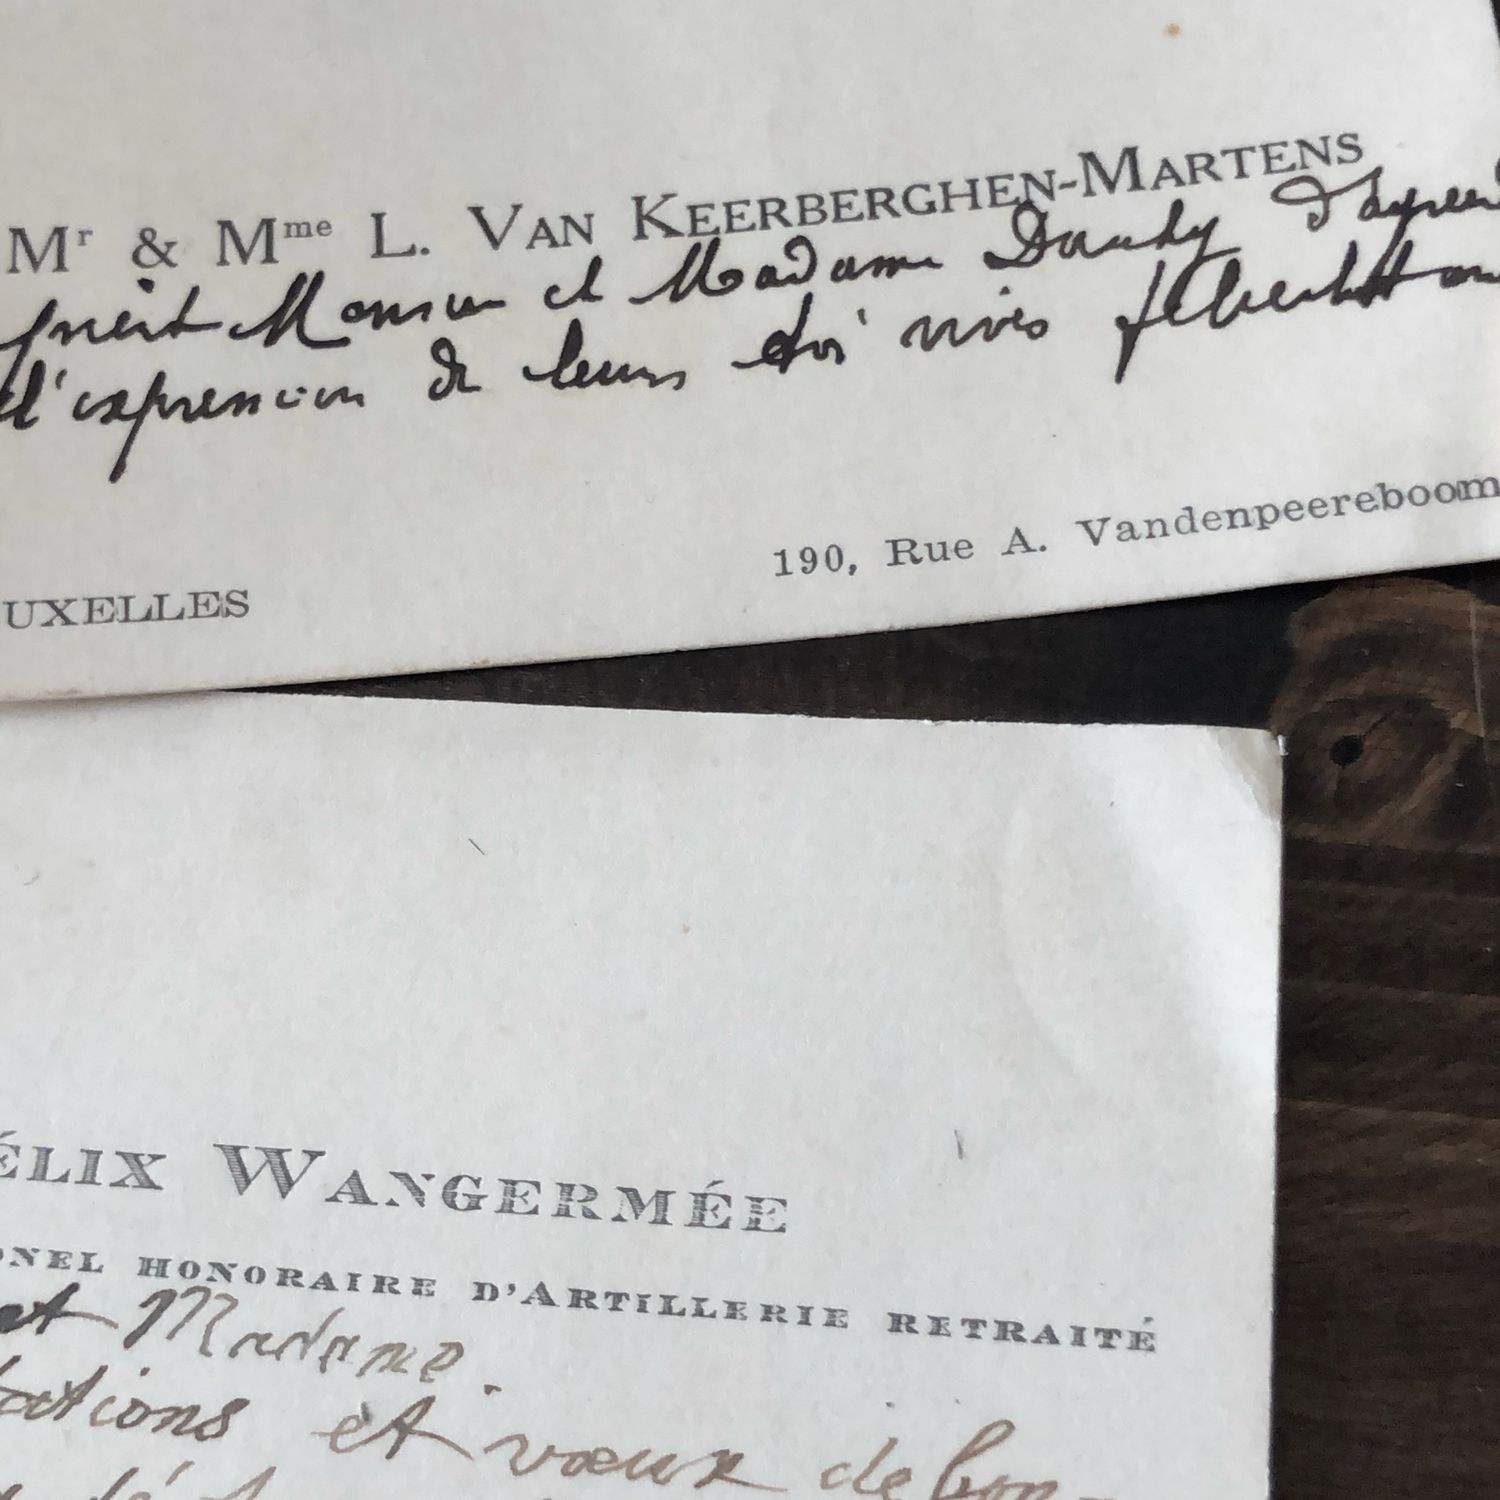 Mr & Mme L. VAN KEERBERGHEN-MARTENS
prient Monsieur et Madame Dandy d'agréer
l'expression de leurs vives félicitations
UXELLES
190, Rue A. Vandenpeereboom
ÉLIX WANGERMÉE
ONEL HONORAIRE D'ARTILLERIE RETRAITÉ
et Madame.
tations et vœux de bon-